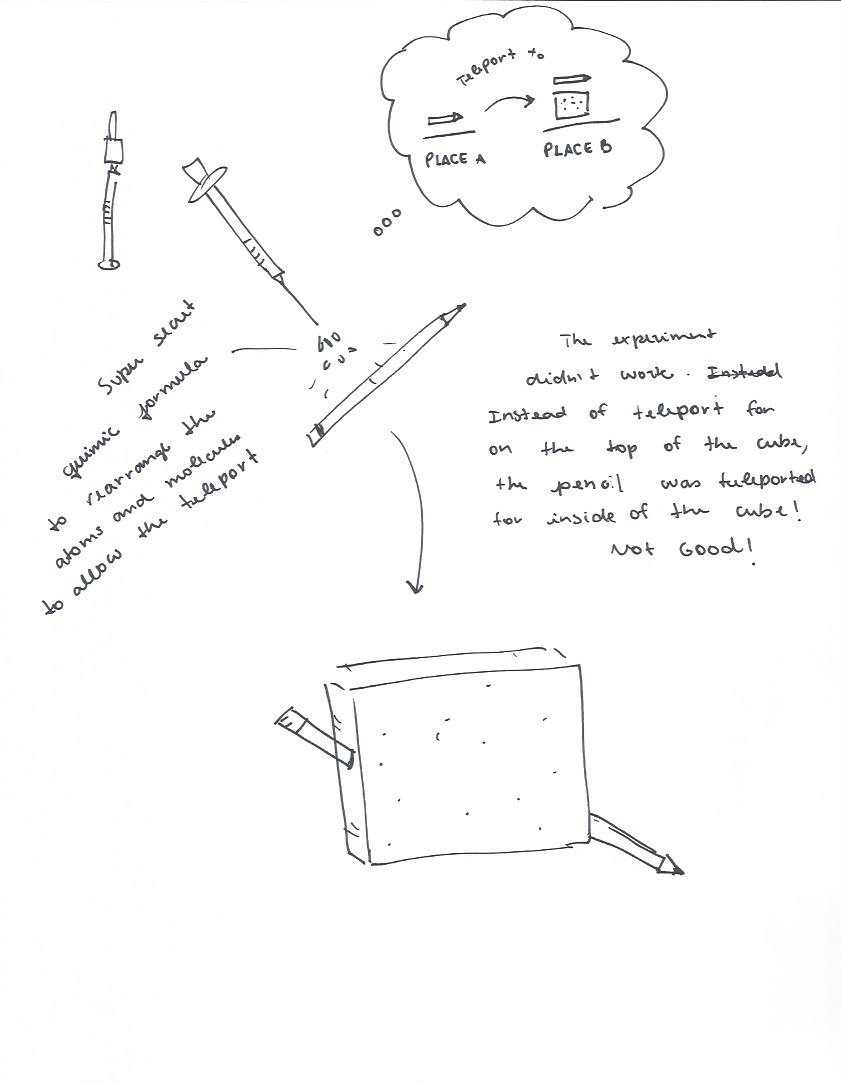 Teleport to
PLACE A
PLACE B
Super secret
quimic formula
to rearrange the
atoms and molecules
to allow the teleport
The experiment
didn't work. Instedd
Instead of teleport for
on the top of the cube,
the pencil was teleported
for inside of the cube!
Not Good!